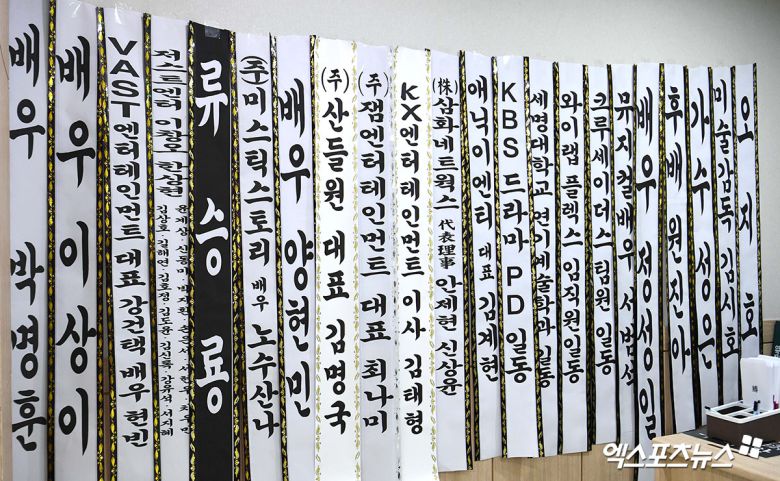 배우 박명훈
배우 이상이
VAST엔터테인먼트 대표 강건택 배우 현빈
저스트엔터 이창우 한상현
윤계상 신동미 박지환
김상호·김해연·김효정·김도윤·김신록·강유석·서지혜
류승룡
(주)미스틱스토리 배우 노수산나
배우 양현민
(주)산들원 대표 김명국
(주)잼엔터테인먼트 대표 최나미
KX엔터테인먼트 이사 김태형
(株)삼화네트웍스 代表理事 안제현 신상윤
애닉이엔티 대표 김계현
KBS 드라마 PD 일동
세명대학교 연기예술학과 일동
와이랩 플렉스 임직원일동
크루세이더스팀원 일동
뮤지컬배우 서범석
배우 정성일
후배 원진아
가수 성은
미술감독 김시호
오지호
엑스포츠뉴스